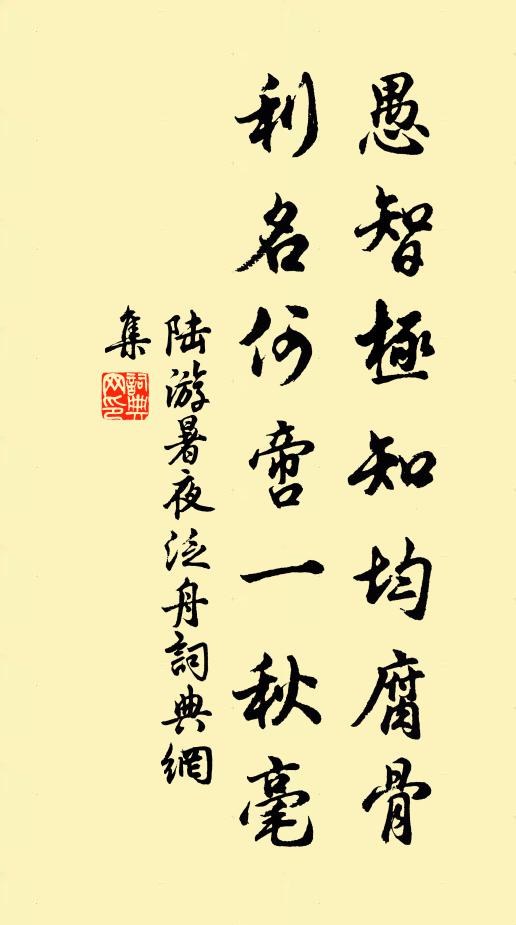 愚智極知均腐骨
利名何啻一秋毫
陸游暑夜泛舟詞典網
集
詞典网印